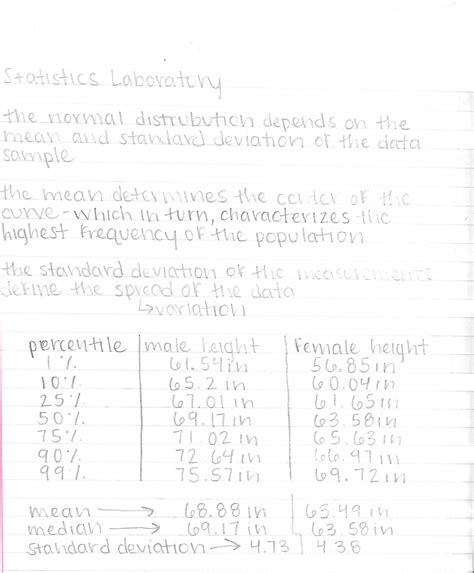 Statistics Laboratory
the normal distrubution depends on the
mean and standard deviation of the data
sample
the mean determines the center of the
curve - which in turn, characterizes the
highest frequency of the population
the standard deviation of the measurements
define the spread of the data
↳variation
percentile male height female height
1% 61.54in 56.85in
10% 65.2in 60.04in
25% 67.01in 61.65in
50% 69.17in 63.58in
75% 71.02in 65.63in
90% 72.64in 66.97in
99% 75.57in 69.72in
mean → 68.88in 63.49in
median → 69.17in 63.58in
standard deviation → 4.73 4.38